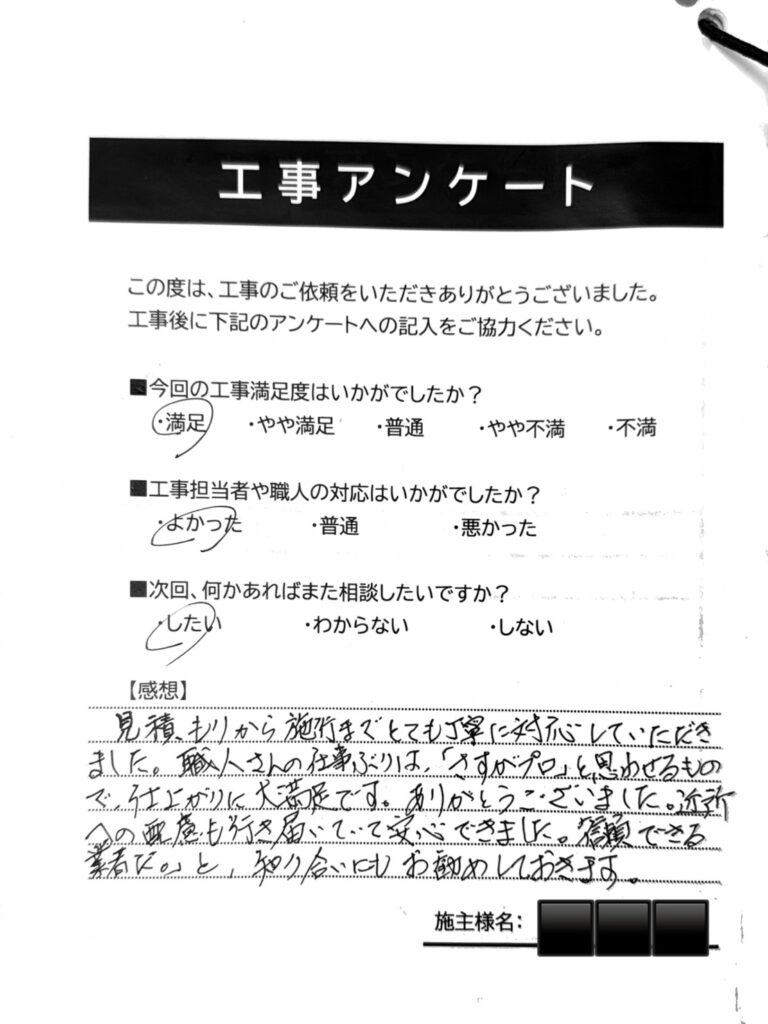 工事アンケート
この度は、工事のご依頼をいただきありがとうございました。
工事後に下記のアンケートへの記入をご協力ください。
■今回の工事満足度はいかがでしたか?
・満足 ・やや満足 ・普通 ・やや不満 ・不満
■工事担当者や職人の対応はいかがでしたか?
・よかった ・普通 ・悪かった
■次回、何かあればまた相談したいですか?
・したい ・わからない ・しない
【感想】
見積もりから施行までとても丁寧に対応していただき
ました。職人さんの仕事ぶりは、「さすがプロ」と思わせるもの
で、仕上がりに大満足です。ありがとうございました。近所
への配慮も行き届いていて安心できました。信頼できる
業者だ。」と、知り合いにもお勧めしておきます。
施主様名: